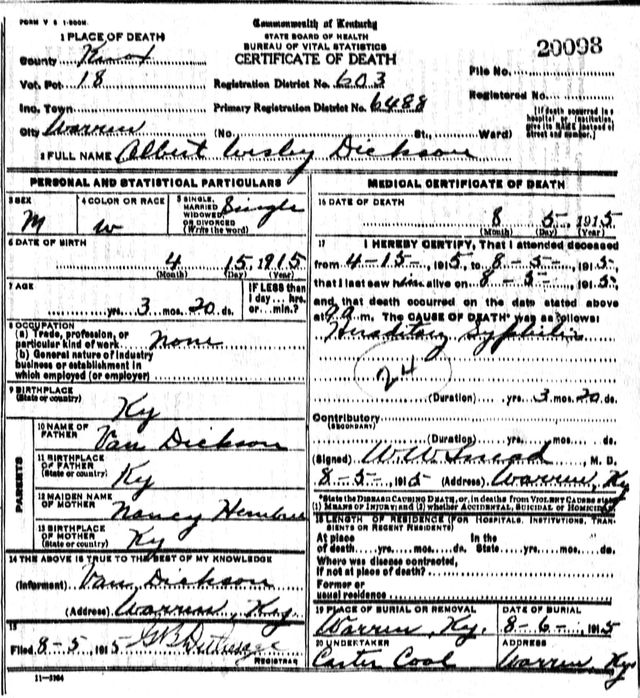 FORM V S 1-500M.
Commonwealth of Kentucky
STATE BOARD OF HEALTH
BUREAU OF VITAL STATISTICS
CERTIFICATE OF DEATH
20098
1 PLACE OF DEATH
County Knox
Vot. Pct 18
Inc. Town
City Warren (No. St., Ward)
Registration District No. 603
Primary Registration District No. 6488
File No.
Registered No.
[If death occurred in a hospital or institution, give its NAME instead of street and number.]
2 FULL NAME Albert Wesley Dickson
PERSONAL AND STATISTICAL PARTICULARS
3 SEX M
4 COLOR OR RACE W
5 SINGLE, MARRIED, WIDOWED, OR DIVORCED (Write the word) Single
6 DATE OF BIRTH
4 15, 1915
(Month) (Day) (Year)
7 AGE
yrs. 3 mos. 20 ds.
IF LESS than 1 day....hrs. or....min.?
8 OCCUPATION
(a) Trade, profession, or particular kind of work None
(b) General nature of industry business or establishment in which employed (or employer)
9 BIRTHPLACE (State or country) Ky
PARENTS
10 NAME OF FATHER Van Dickson
11 BIRTHPLACE OF FATHER (State or country) Ky
12 MAIDEN NAME OF MOTHER Nancy
13 BIRTHPLACE OF MOTHER (State or country) Ky
14 THE ABOVE IS TRUE TO THE BEST OF MY KNOWLEDGE
(Informant) Van Dickson
(Address) Warren, Ky.
15
Filed 8-5, 1915
REGISTRAR
11-3184
MEDICAL CERTIFICATE OF DEATH
16 DATE OF DEATH
8 5, 1915
(Month) (Day) (Year)
17 I HEREBY CERTIFY, That I attended deceased
from 4-15-, 1915, to 8-5-, 1915,
that I last saw him alive on 8-5-, 1915,
and that death occurred on the date stated above
at 9 a.m. The CAUSE OF DEATH* was as follows:
Hereditary Syphilis
24
(Duration) yrs. 3 mos. 20 ds.
Contributory (SECONDARY)
(Duration) yrs. mos. ds.
(Signed) W.W. , M. D.
8-5-, 1915 (Address) Warren, Ky
*State the DISEASE CAUSING DEATH, or, in deaths from VIOLENT CAUSES state (1) MEANS OF INJURY; and (2) whether ACCIDENTAL, SUICIDAL or HOMICIDAL
18 LENGTH OF RESIDENCE (FOR HOSPITALS, INSTITUTIONS, TRANSIENTS OR RECENT RESIDENTS)
At place of death....yrs....mos....ds. In the State....yrs....mos....ds.
Where was disease contracted, if not at place of death?
Former or usual residence
19 PLACE OF BURIAL OR REMOVAL Warren, Ky.
DATE OF BURIAL 8-6-, 1915
20 UNDERTAKER Carter Coal
ADDRESS Warren, Ky.